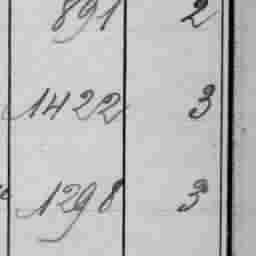 891 2
1422 3
1298 3